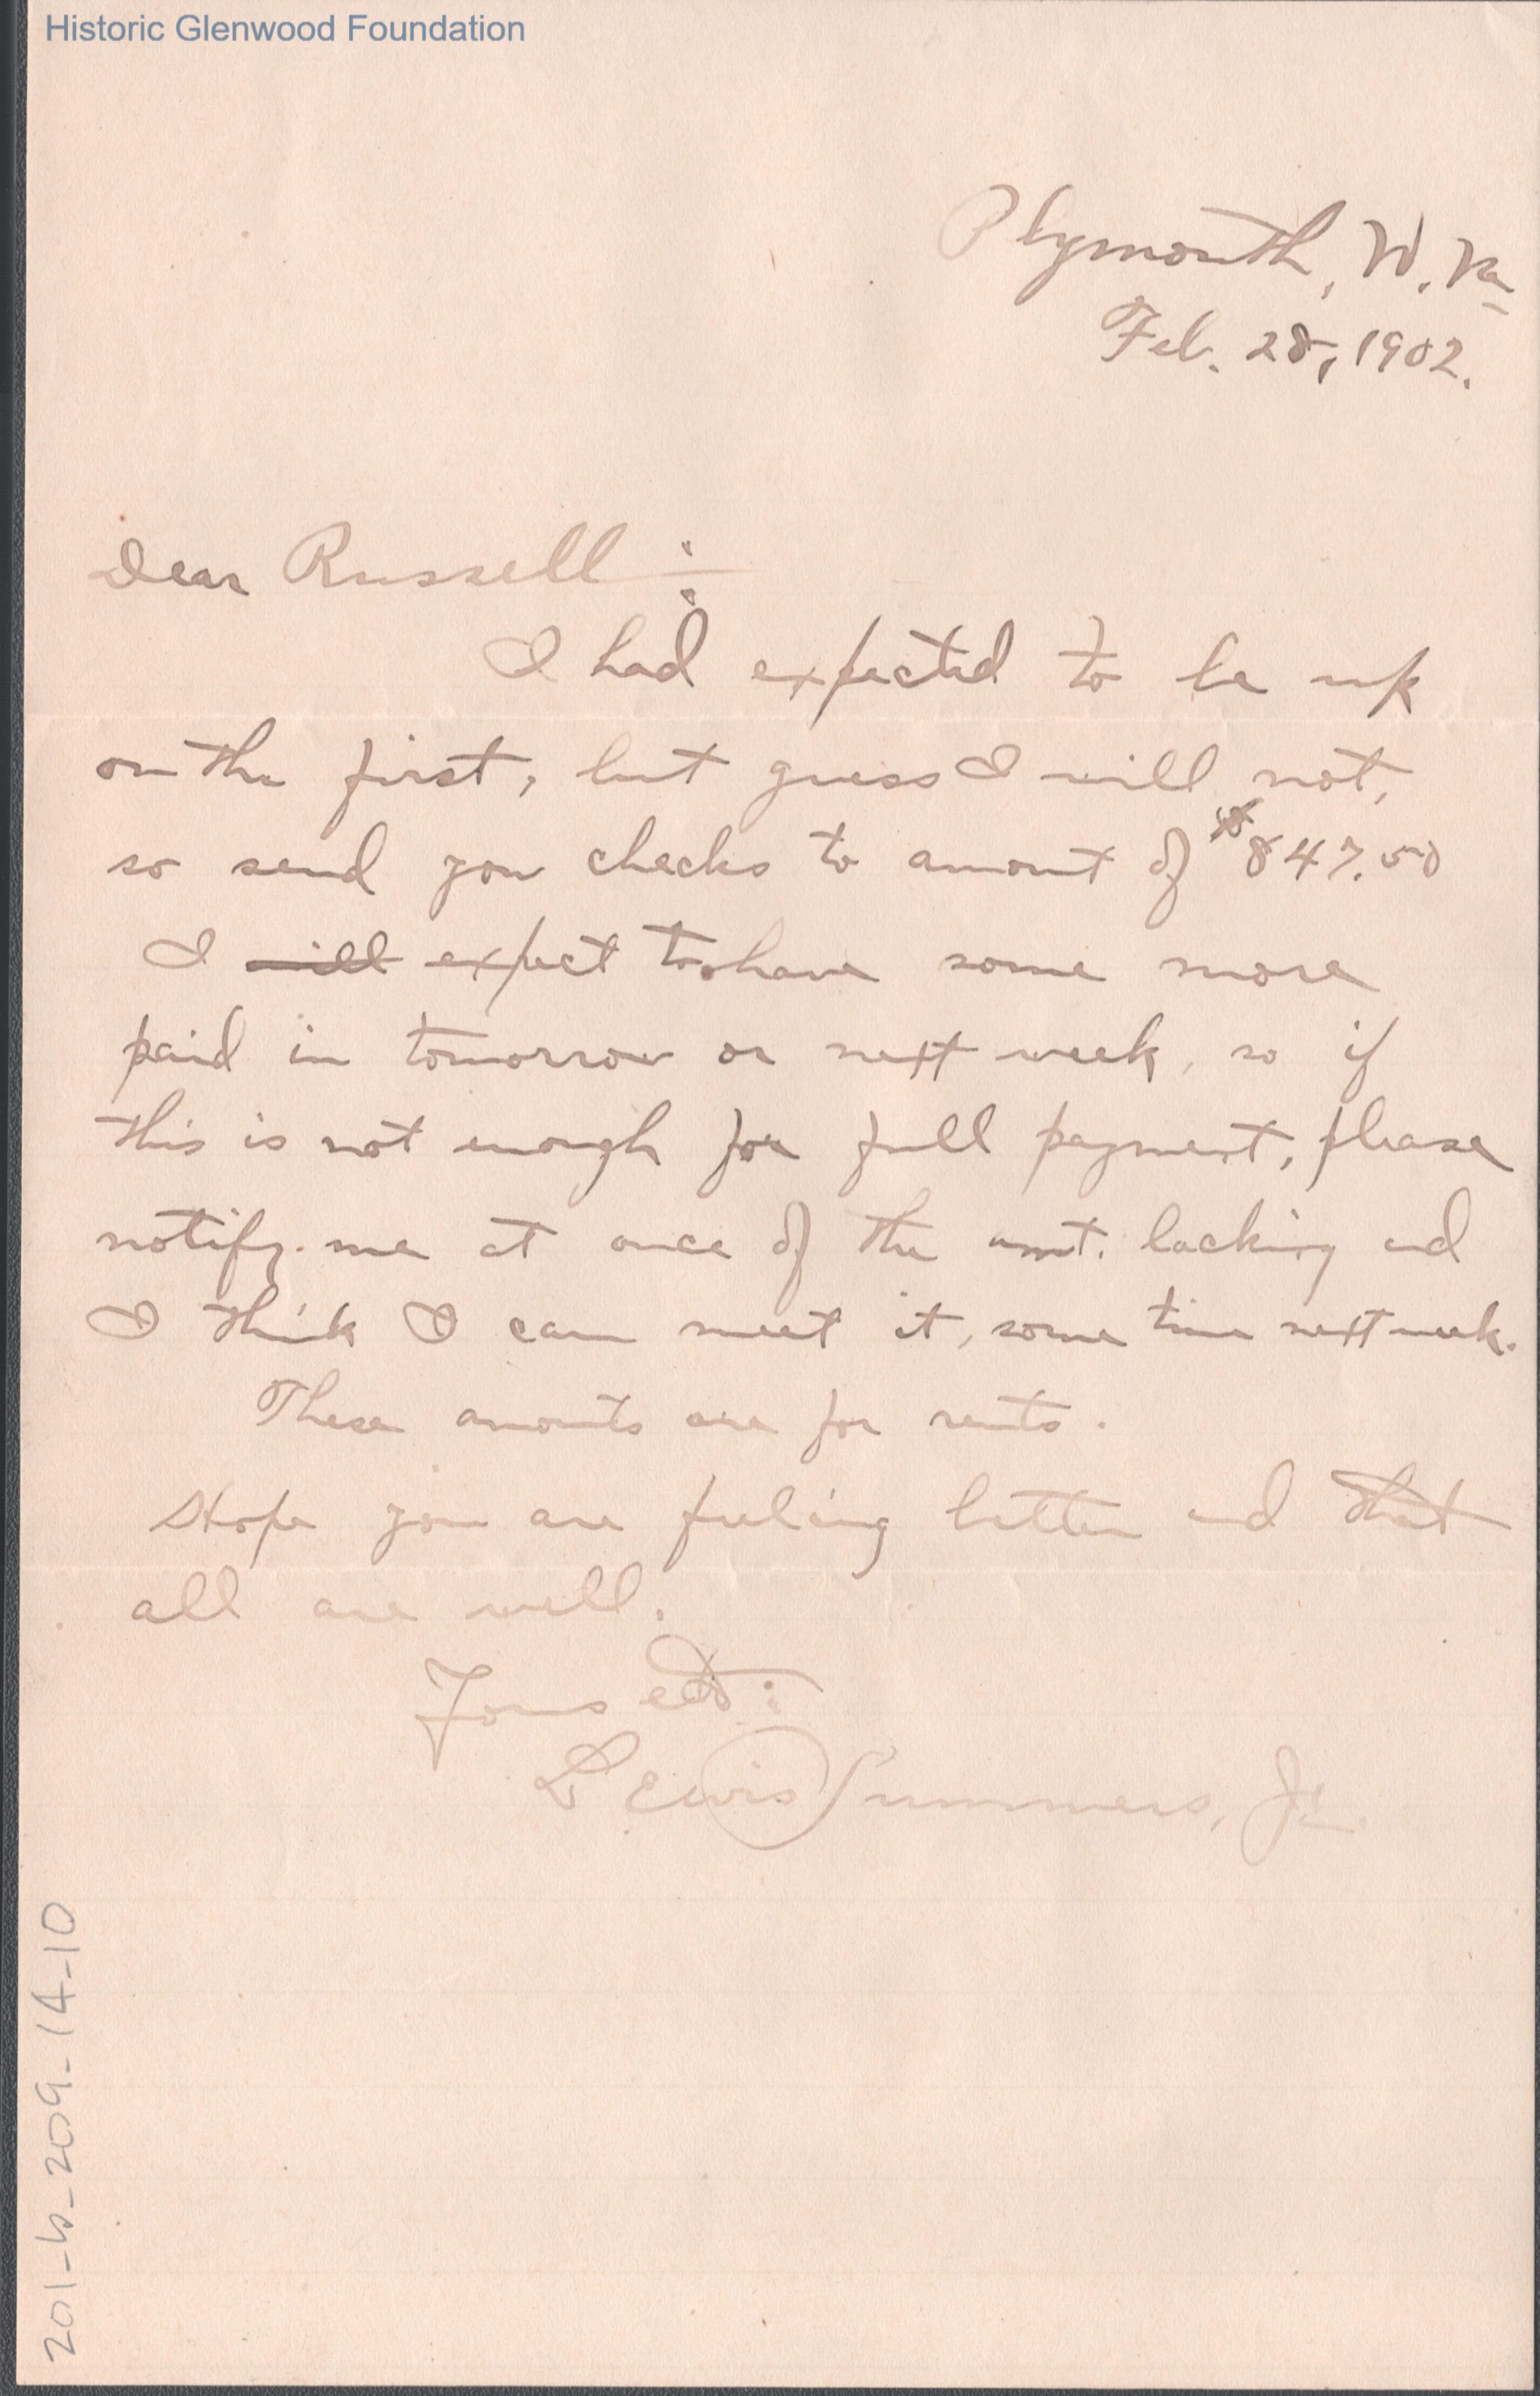 Historic Glenwood Foundation
Plymouth, W. Va
Feb. 28, 1902.
Dear Russell :
I had expected to be up
on the first, but guess I will not,
so send you checks to amount of $847.50
I will expect to have some more
paid in tomorrow or next week, so if
this is not enough for full payment, please
notify me at once of the amt. lacking and
I think I can meet it, some time next week.
These amounts are for rents.
Hope you are feeling better and that
all are well.
Yours etc:
Lewis Summers, Jr.
201-b-209-14-10